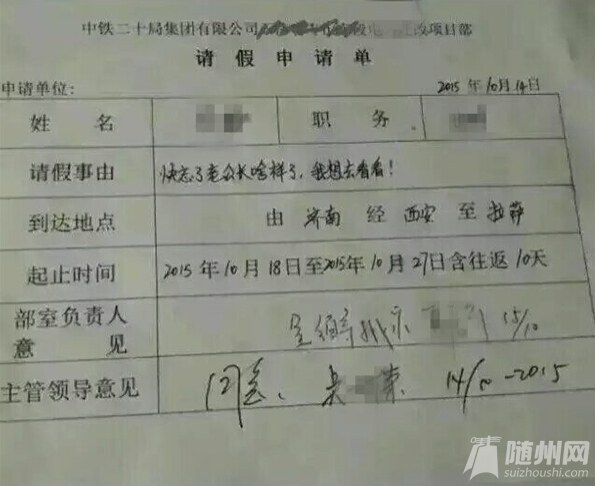 中铁二十局集团有限公司 改项目部
请假申请单
申请单位: 2015年10月14日
姓名 职务
请假事由 快忘了老公长啥样了,我想去看看!
到达地点 由 济南 经 西安 至 拉萨
起止时间 2015年10月18日至2015年10月27日含往返10天
部室负责人
意见 呈领导批示 15/10
主管领导意见 同意、 14/10-2015
随州网
suizhoushi.com